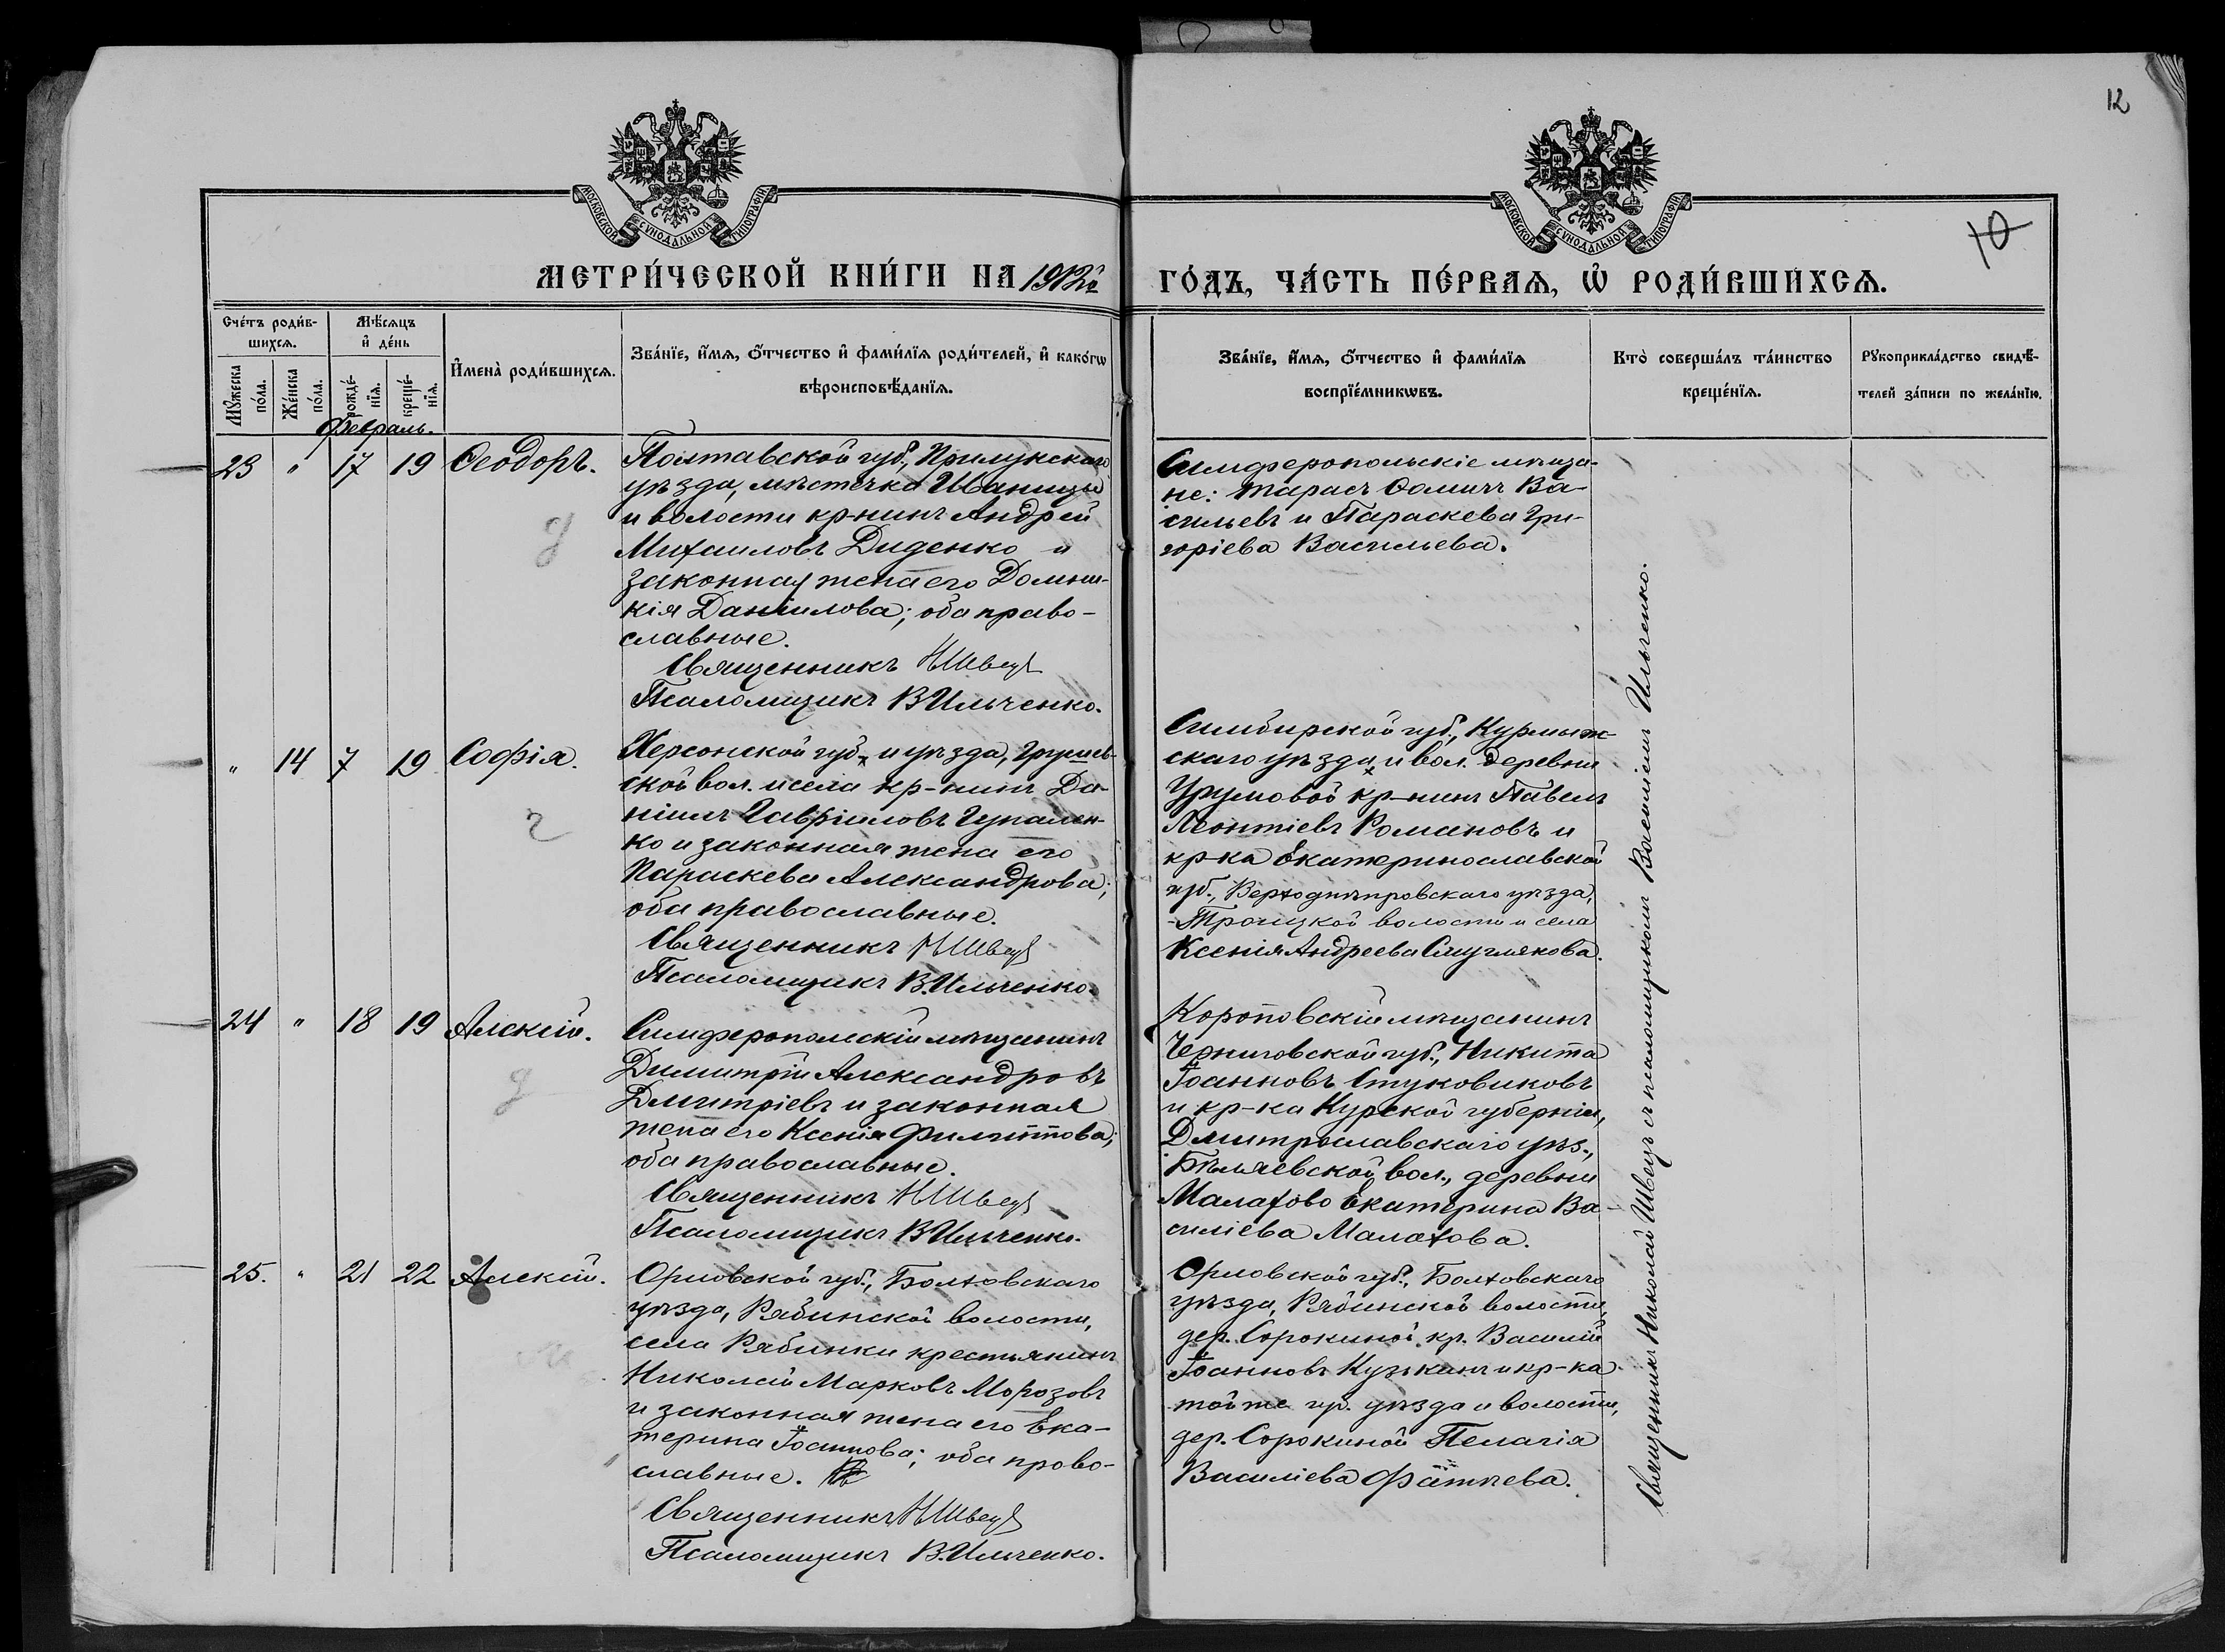 12
10
МОСКОВСКОЙ СѴНОДАЛЬНОЙ ТИПОГРАФІИ
МОСКОВСКОЙ СѴНОДАЛЬНОЙ ТИПОГРАФІИ
МЕТРИ́ЧЕСКОЙ КНИ́ГИ НА 1912й ГО́ДЪ, ЧА́СТЬ ПЕ́РВАѦ, Ѡ҆ РОДИ́ВШИХСѦ.
Сче́тъ роди́в-
шихсѧ.
Мꙋ́жеска по́ла.
Же́нска по́ла.
Мѣ́сѧцъ
и҆ де́нь
рожде́-
нїѧ.
креще́-
нїѧ.
И҆мена̀ роди́вшихсѧ.
Зва́нїе, и҆́мѧ, ѻ҆́тчество и҆ фами́лїѧ роди́телей, и҆ како́гѡ
вѣроисповѣ́данїѧ.
Зва́нїе, и҆́мѧ, ѻ҆́тчество и҆ фами́лїѧ
воспрїе́мникѡвъ.
Кто̀ соверша́лъ та́инство
креще́нїѧ.
Рꙋкоприкла́дство свидѣ́-
телей за́писи по жела́нїю.
Февраль.
23 " 17 19 Ѳеодоръ.
Полтавской губ., Прилукскаго
уѣзда, мѣстечка Иваницы
и волости кр-нинъ Андрей
Михаиловъ Диденко и
законная жена его Домни-
кія Даніилова; оба право-
славные.
Священникъ Н Швецъ
Псаломщикъ В Ильченко.
Симферопольскіе мѣща-
не: Тарасъ Ѳоминъ Ва-
сильевъ и Параскева Гри-
горіева Васильева.
" 14 7 19 Софія.
Херсонской губ. и уѣзда,
ской вол. и села кр-нинъ Да-
ніилъ Гавріиловъ
ко и законная жена его
Параскева Александрова;
оба православные.
Священникъ Н Швецъ
Псаломщикъ В. Ильченко.
Симбирской губ., Курмыш-
скаго уѣзда и вол. деревни
Урумовой кр-нинъ Павелъ
Леонтіевъ Романовъ и
кр-ка Екатеринославской
губ., Верходнѣпровскаго уѣзда,
Троицкой волости и села
Ксенія Андреева Смуглякова.
24 " 18 19 Алексій.
Симферопольскій мѣщанинъ
Димитрій Александровъ
Дмитріевъ и законная
жена его Ксенія Филиппова;
оба православные.
Священникъ Н Швецъ
Псаломщикъ В Ильченко.
Коропповскій мѣщанинъ
Черниговской губ., Никита
Іоанновъ Стуковиковъ
и кр-ка Курской губерніи,
Дмитрославскаго уѣз.,
Бѣляевской вол., деревни
Малахово Екатерина Ва-
силіева Малахова.
25. " 21 22 Алексій.
Орловской губ., Болховскаго
уѣзда, Рябинской волости,
села Рябинки крестьянинъ
Николай Марковъ Морозовъ
и законная жена его Ека-
терина Іоаннова; оба прово-
славные.
Священникъ Н Швецъ
Псаломщикъ В. Ильченко.
Орловской губ., Болховскаго
уѣзда, Рябинской волости,
дер. Сорокиной кр. Василій
Іоанновъ Кузькинъ и кр-ка
той же гр. уѣзда и волости,
дер. Сорокиной Пелагія
Василіева Фатѣева.
Священникъ Николай Швецъ съ псаломщикомъ Василіемъ Ильченко.